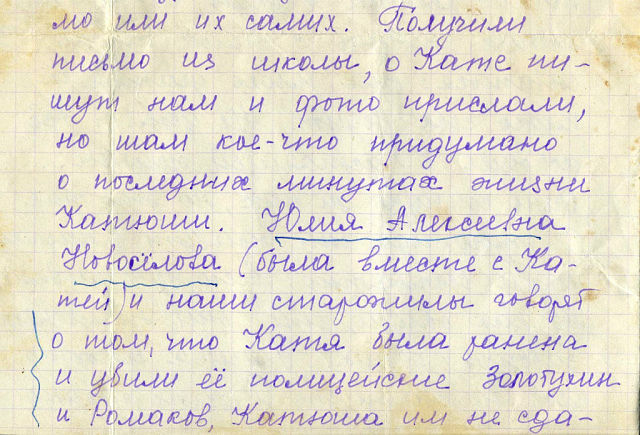 мо или их самих. Получили
письмо из школы, о Кате пи-
шут нам и фото прислали,
но там кое-что придумано
о последних минутах жизни
Катюши. Юлия Алексевна
Новосёлова (была вместе с Ка-
тей) и наши старожилы говорят
о том, что Катя была ранена
и убили её полицейские Золотухин
и Ромаков, Катюша им не сда-